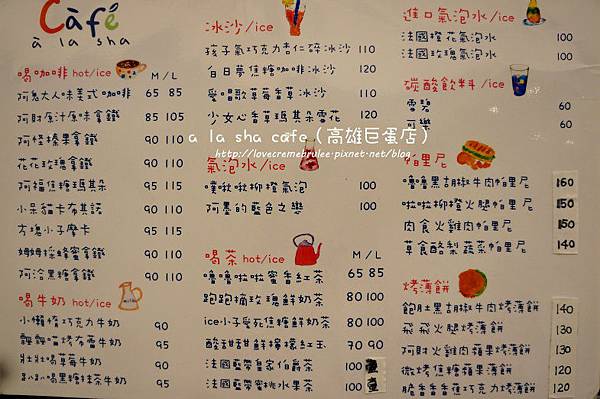 Café
à la sha
喝咖啡 hot/ice M / L
阿兔大人味美式咖啡 65 85
阿財原汁原味拿鐵 85 105
阿怪榛果拿鐵 90 110
花花玫瑰拿鐵 90 110
阿福焦糖瑪其朵 95 115
小呆甜卡布其諾 90 110
方塊小子摩卡 95 115
姆姆採蜂蜜拿鐵 90 110
阿洽黑糖拿鐵 90 110
喝牛奶 hot/ice
小懶惰巧克力牛奶 90
烤布蕾牛奶 90
壯壯喝草莓牛奶 90
趴趴喝黑糖抹茶牛奶 95
冰沙/ice
孩子氣巧克力杏仁碎冰沙 110
白日夢焦糖咖啡冰沙 120
愛唱歌草莓香草冰沙 110
少女心香草瑪其朵雪花 120
a la sha cafe (高雄巨蛋店)
http://lovecremebrulee.pixnet.net/blog
氣泡水/ice
噗啾啾柳橙氣泡 100
阿墨的藍色之戀 100
喝茶 hot/ice M / L
嚕嚕啦啦蜜香紅茶 65 85
跑跑摘玫瑰鮮奶茶 80 100
ice小子愛死焦糖鮮奶茶 80 100
酸甜甜鮮檸檬紅玉 70 90
法國藍帶皇家伯爵茶 100
法國藍帶蜜桃水果茶 100
進口氣泡水/ice
法國橙花氣泡水 100
法國玫瑰氣泡水 100
碳酸飲料/ice
雪碧 60
可樂 60
帕里尼
嚕嚕黑胡椒牛肉帕里尼 160
啦啦柳橙火腿帕里尼 150
肉食火雞肉帕里尼 150
草食酪梨蔬菜帕里尼 140
烤薄餅
飽肚黑胡椒牛肉烤薄餅 140
飛飛火腿烤薄餅 130
阿財火雞肉蘋果烤薄餅 130
微烤焦糖蘋果薄餅 120
脆香香香蕉巧克力烤薄餅 120